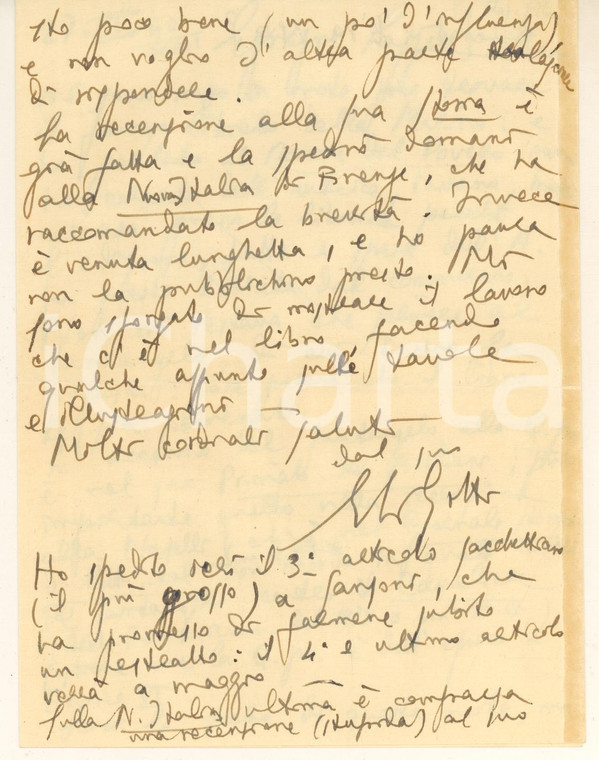 sto poco bene (un po' d'influenza)
e non voglio d'altra parte
di rispondere.
La recensione alla sua Storia è
già fatta e la spedirò domani
alla Nuova Italia di Firenze, che ha
raccomandato la brevità. Invece
è venuta lunghetta, e ho paura
non la pubblichino presto. Mi
sono sforzato di mostrare il lavoro
che c'è nel libro, facendo
qualche appunto sulle tavole
e illustrazioni
Molti cordiali saluti
dal suo
Ho spedito ieri il 3° articolo sacchettiano
(il più grosso) a Sansoni, che
ha promesso di farmene subito
un estratto: il 4° e ultimo articolo
verrà a maggio
Sulla N. Italia ultima è comparsa
una recensione (stupida) al suo
iCharta